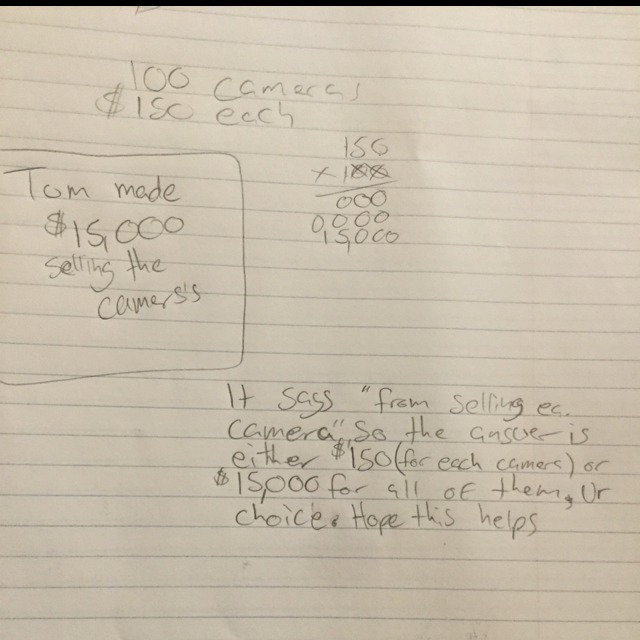 100 cameras
$150 each
150
x 100
000
0,000
15,000
Tom made
$15,000
selling the
camers's
It says "from selling ec.
camera". So the answer is
either $150 (for each camera) or
$15,000 for all of them, Ur
choice. Hope this helps